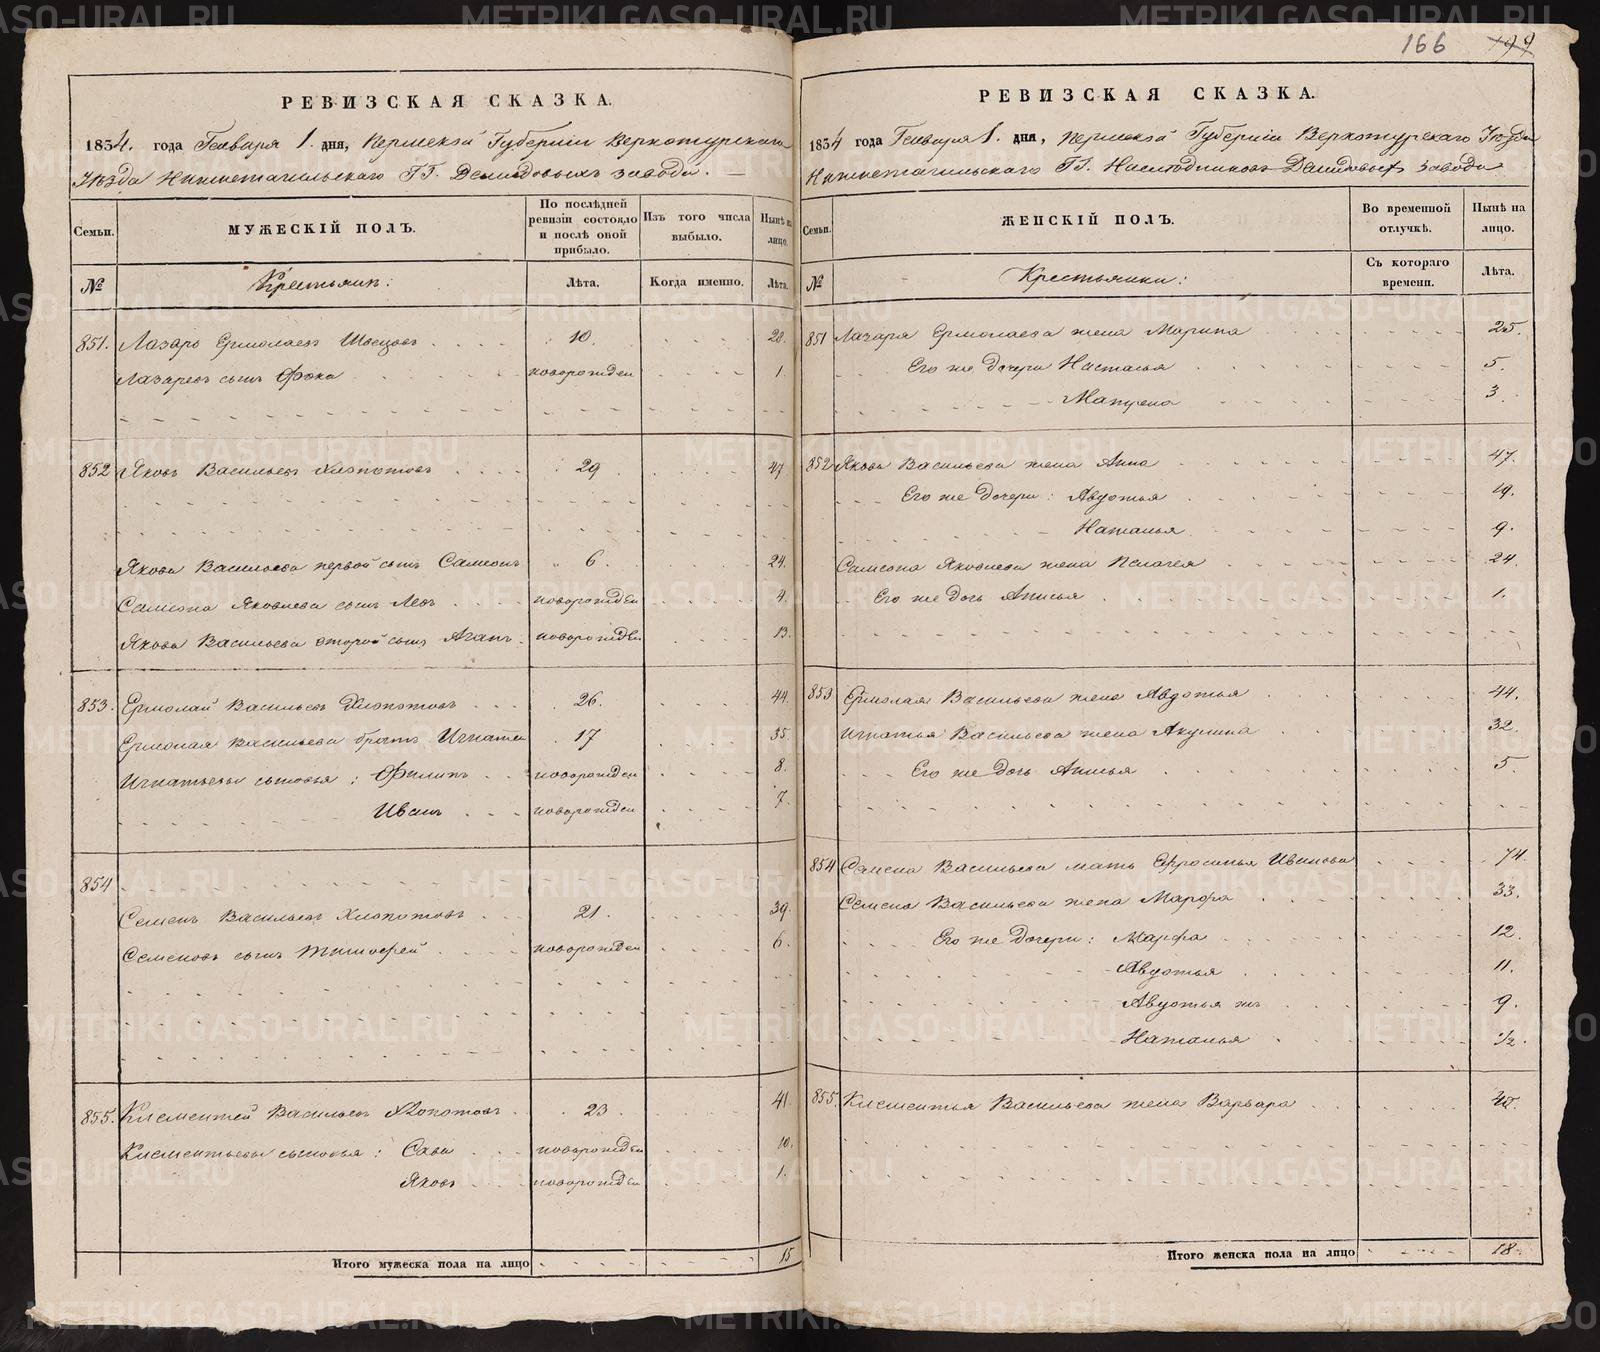 166 199
РЕВИЗСКАЯ СКАЗКА.
1834. года Генваря 1. дня, Пермской Губерніи Верхотурскаго
Уѣзда Нижнетагильскаго ГГ. Демидовыхъ завода.
Семьи.
МУЖЕСКІЙ ПОЛЪ.
По послѣдней ревизіи состояло и послѣ оной прибыло.
Изъ того числа выбыло.
Нынѣ на лицо.
№
Крестьянъ:
Лѣта.
Когда именно.
Лѣта.
851. Лазарь Ермолаевъ Швецовъ 10. 28.
Лазаревъ сынъ Фока новорожден 1.
852 Яковъ Васильевъ Хлопотовъ 29 47
Якова Васильева первой сынъ Самсонъ 6. 24.
Самсона Яковлева сынъ Левъ новорожден 4.
Якова Васильева второй сынъ Агапъ новорожден 13.
853. Ермолай Васильевъ Хлопотовъ 26. 44.
Ермолая Васильева братъ Игнатей 17 35.
Игнатьевы сыновья: Филипъ новорожден 8.
Иванъ новорожден 7.
854
Семенъ Васильевъ Хлопотовъ 21. 39.
Семеновъ сынъ Тимофей новорожден 6.
855. Клементей Васильевъ Хлопотовъ 23. 41.
Клементьевы сыновья: Сава новорожден 10.
Яковъ новорожден 1.
Итого мужеска пола на лицо 15
РЕВИЗСКАЯ СКАЗКА.
1834 года Генваря 1. дня, Пермской Губерніи Верхотурскаго Уѣзда
Нижнетагильскаго ГГ. Наслѣдниковъ Демидовыхъ завода
Семьи.
ЖЕНСКІЙ ПОЛЪ.
Во временной отлучкѣ.
Нынѣ на лицо.
№
Крестьянки:
Съ котораго времени.
Лѣта.
851 Лазаря Ермолаева жена Марина 25.
Его же дочери Настасья 5.
Матрена 3.
852 Якова Васильева жена Анна 47.
Его же дочери: Авдотья 19.
Наталья 9.
Самсона Яковлева жена Пелагея 24.
Его же дочь Анисья 1.
853 Ермолая Васильева жена Авдотья 44.
Игнатья Васильева жена Акулина 32.
Его же дочь Анисья 5.
854 Семена Васильева мать Ефросинья Иванова 74.
Семена Васильева жена Марфа 33.
Его же дочери: Марфа 12.
Авдотья 11.
Авдотья же 9.
Наталья 1/2.
855. Клементья Васильева жена Варвара 40.
Итого женска пола на лицо 18
METRIKI.GASO-URAL.RU